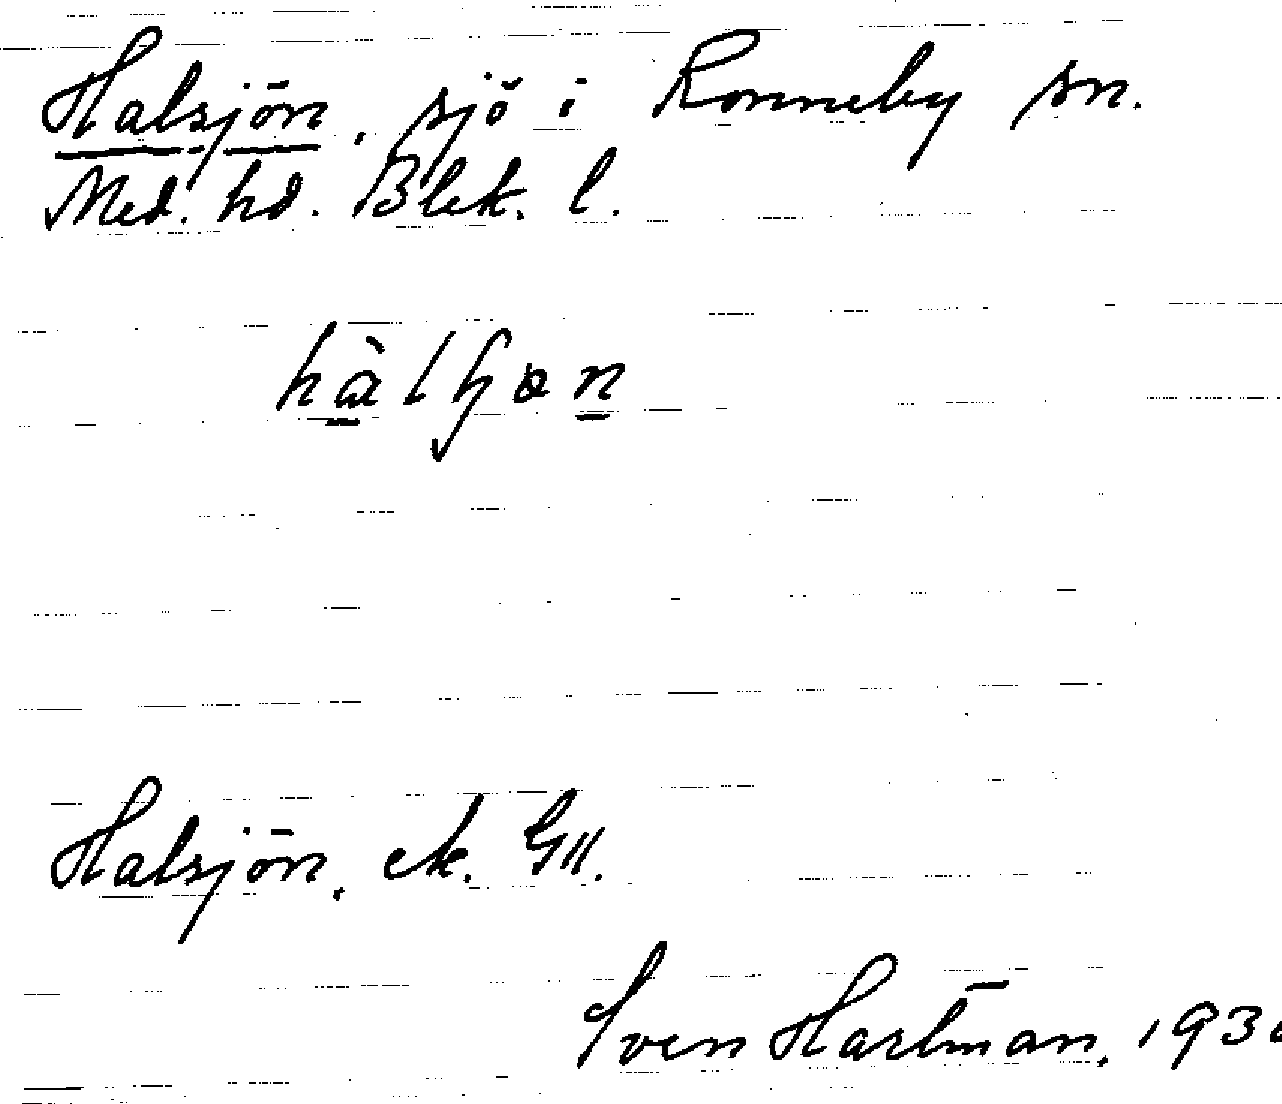 Halsjön, sjö i Ronneby sn.
Med. hd. Blek. l.
Halsjön. ek. GII.
Sven Hartman.